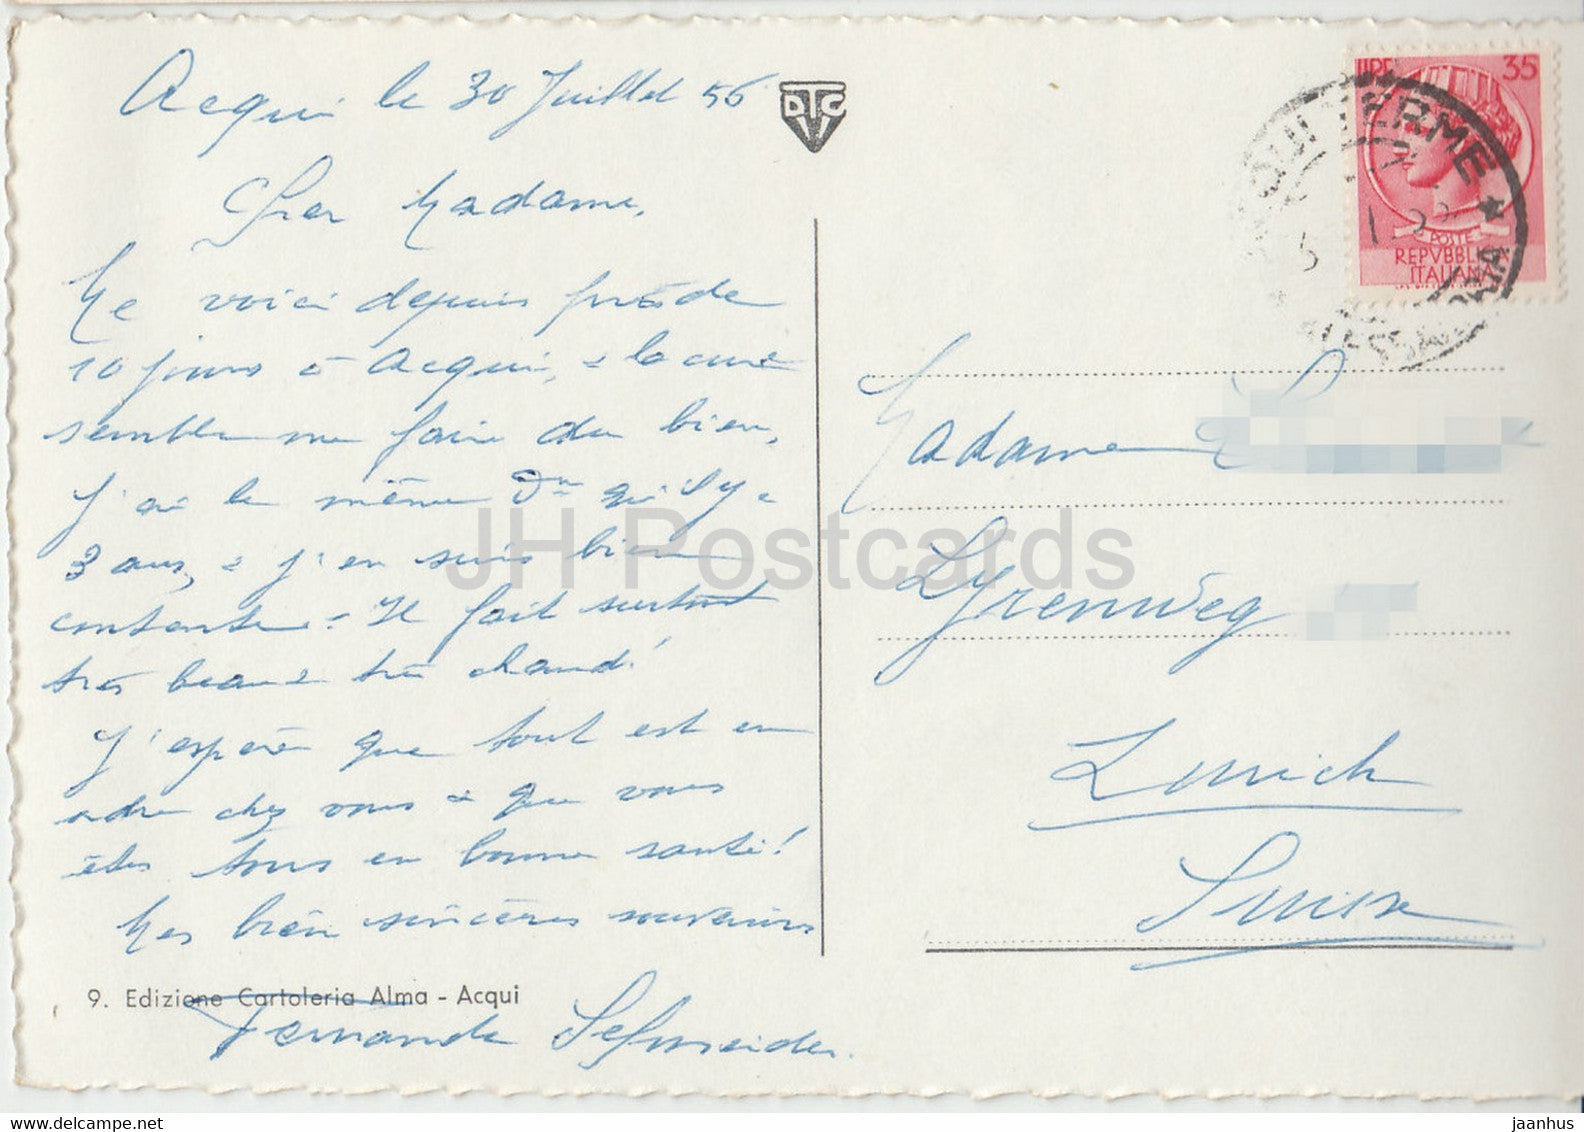 Acqui le 30 Juillet 56
Cher Madame,
Me voici depuis près de
10 jours à Acqui, & la cure
semble me faire du bien,
J'ai le même Dr qu'il y a
3 ans, & j'en suis bien
contente. Il fait surtout
très beau & très chaud!
J'espère que tout est en
ordre chez vous & que vous
êtes tous en bonne santé!
Mes bien sincères souvenirs
Fernande Schneider.
9. Edizione Cartoleria Alma - Acqui
DTCV
LIRE 35
POSTE
REPVBBLICA
ITALIANA
ACQUI TERME
ALESSANDRIA
Madame
Lyrenweg
Zurich
Suisse
JH Postcards
jaanhus